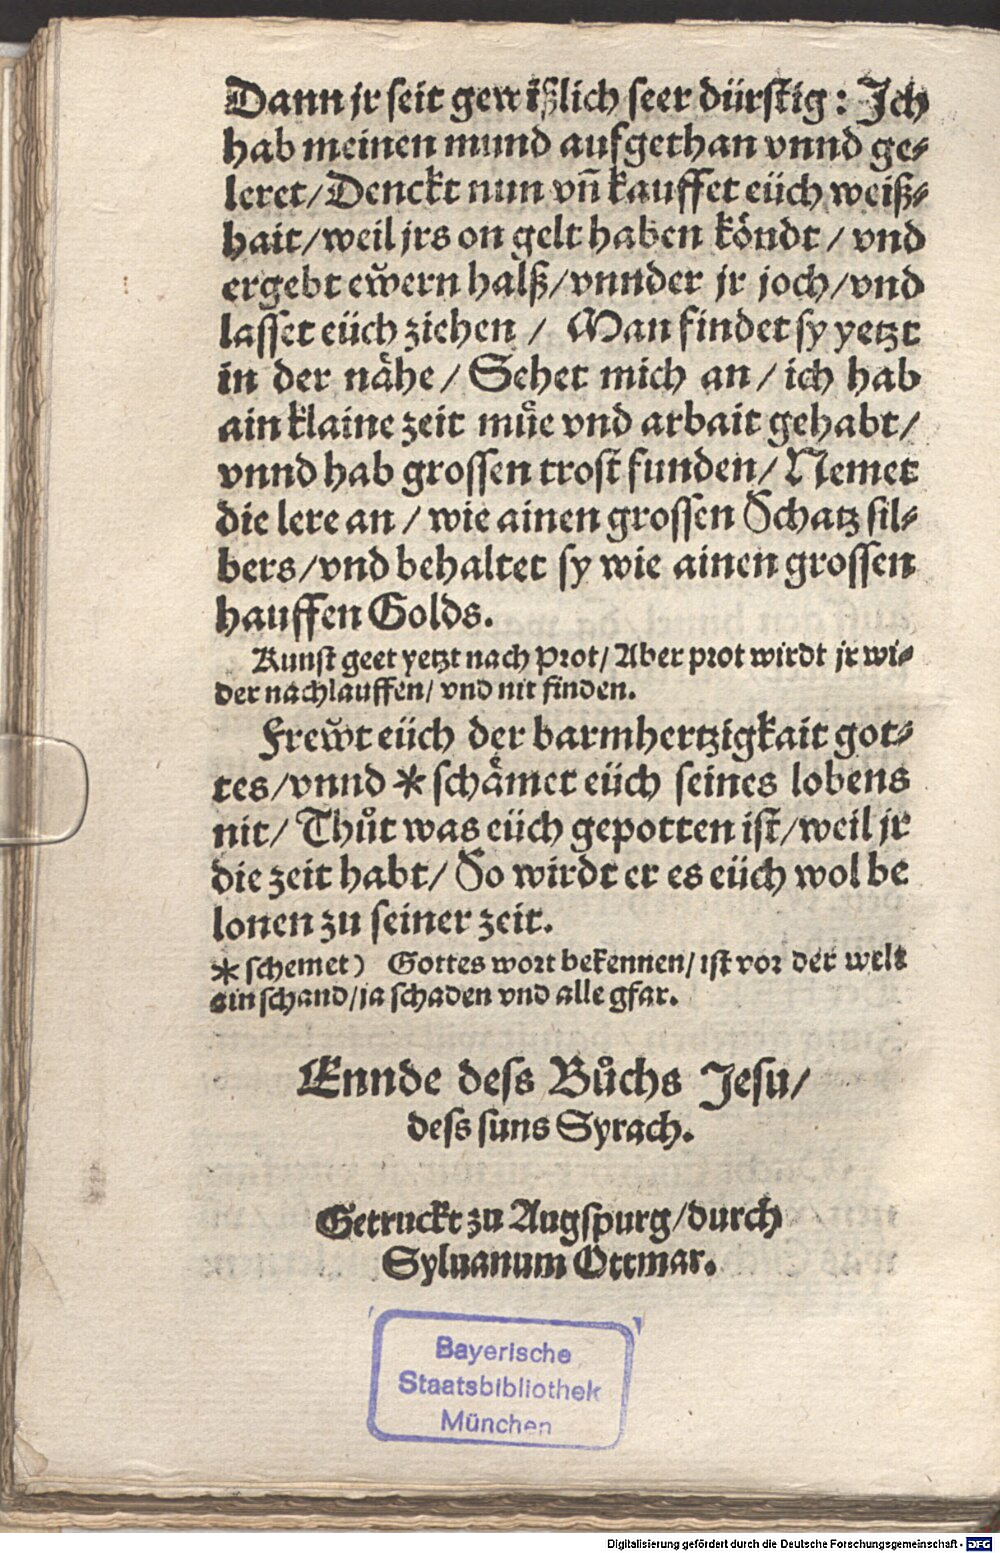 Dann jr seit gewißlich seer dürstig: Jch
hab meinen mund aufgethan vnnd ge⸗
leret/ Denckt nun vñ kauffet eüch weiß⸗
hait/ weil jrs on gelt haben köndt / vnd
ergebt ewͤern halß/ vnnder jr joch/ vnd
lasset eüch ziehen / Man findet sy yetzt
in der naͤhe / Sehet mich an / ich hab
ain klaine zeit muͤe vnd arbait gehabt/
vnnd hab grossen trost funden/ Nemet
die lere an / wie ainen grossen Schatz sil⸗
bers/ vnd behaltet sy wie ainen grossen
hauffen Golds.
Kunst geet yetzt nach Prot/ Aber prot wirdt jr wi⸗
der nachlauffen/ vnd nit finden.
Frewͤt eüch der barmhertzigkait got⸗
tes/ vnnd * schaͤmet eüch seines lobens
nit/ Thuͦt was eüch gepotten ist/ weil jr
die zeit habt/ So wirdt er es eüch wol be
lonen zu seiner zeit.
* schemet) Gottes wort bekennen/ ist vor der welt
ain schand/ ja schaden vnd alle gfar.
Ennde dess Buͦchs Jesu/
dess suns Syrach.
Getruckt zu Augspurg/ durch
Syluanum Ottmar.
Bayerische
Staatsbibliothek
München
Digitalisierung gefördert durch die Deutsche Forschungsgemeinschaft - DFG